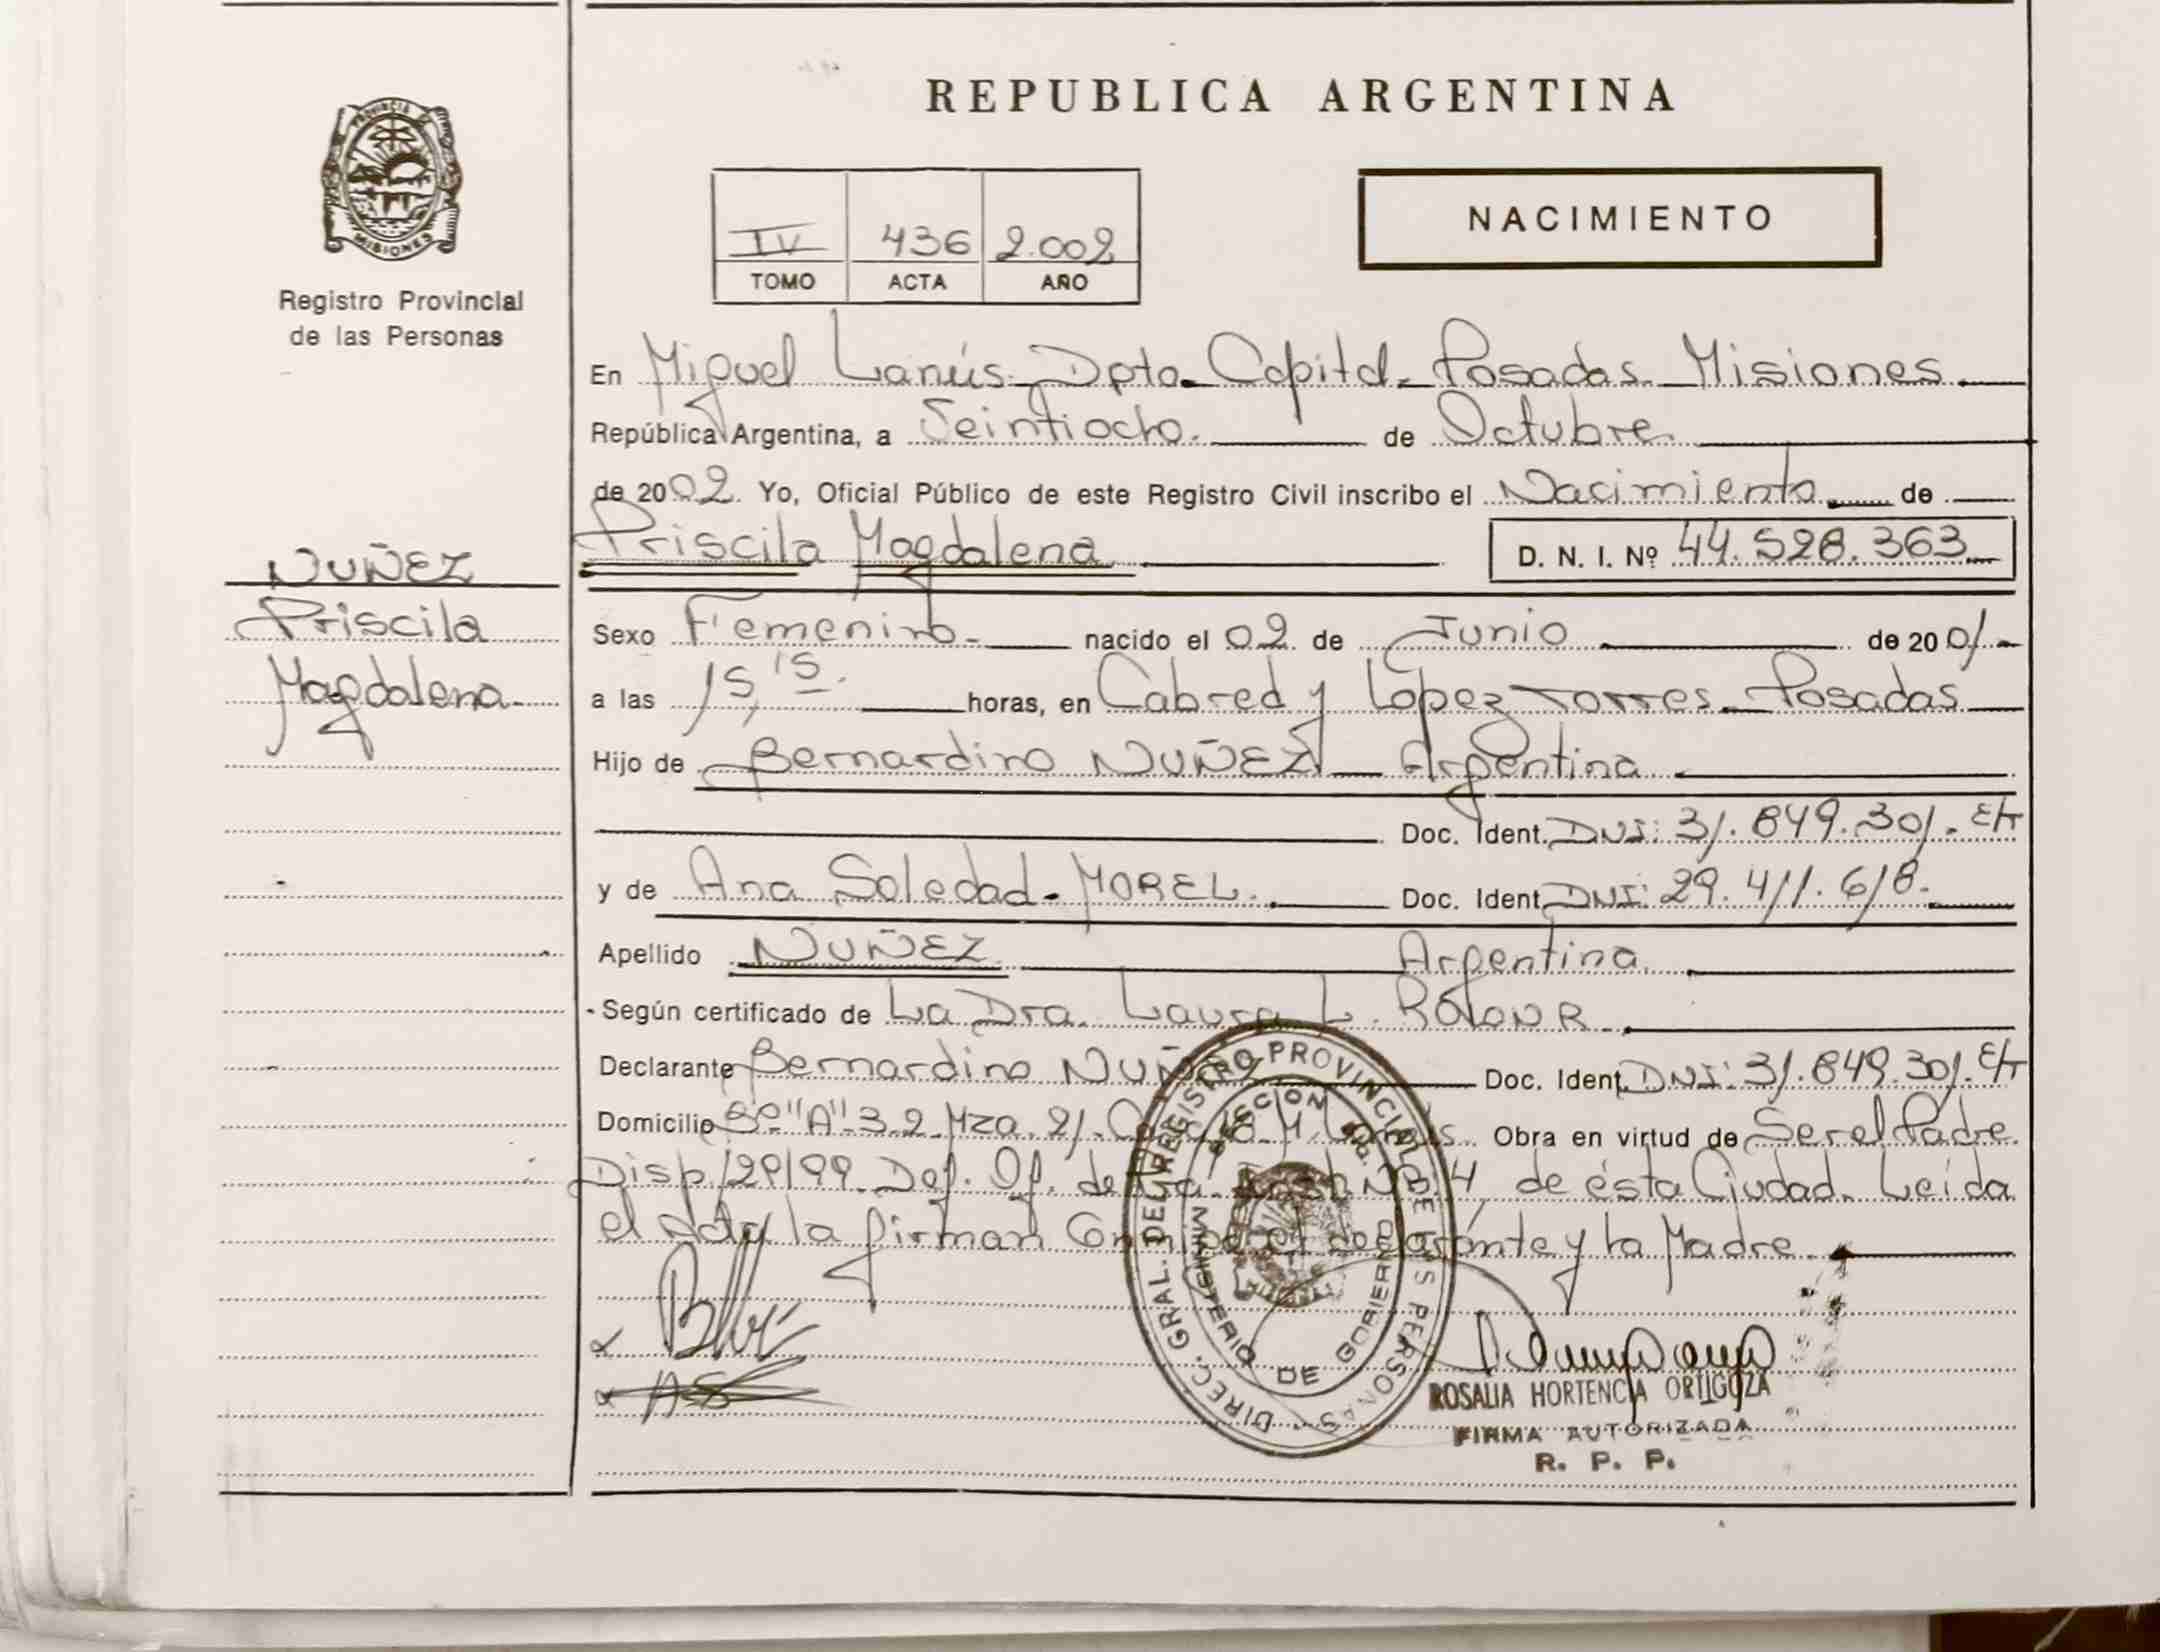 REPUBLICA ARGENTINA
PROVINCIA DE MISIONES
Registro Provincial
de las Personas
IV 436 2.002
TOMO ACTA AÑO
NACIMIENTO
En Miguel Lanús. Dpto. Capital. Posadas. Misiones.
República Argentina, a Veintiocho. de Octubre.
de 2002. Yo, Oficial Público de este Registro Civil inscribo el Nacimiento de
Priscila Magdalena D. N. I. Nº 44.528.363
NUÑEZ
Priscila
Magdalena
Sexo Femenino nacido el 02 de Junio de 2001
a las 15,15. horas, en Cabred y López Torres. Posadas
Hijo de Bernardino NUÑEZ Argentina
Doc. Ident. DNI: 31.849.301. E/T
y de Ana Soledad MOREL. Doc. Ident. DNI: 29.411.618.
Apellido NUÑEZ Argentina
Según certificado de La Dra. Laura L.
Declarante Bernardino NUÑEZ Doc. Ident. DNI: 31.849.301. E/T
Domicilio Bº "A" 3.2 Mza. 21. Obra en virtud de Ser el Padre.
Disp. 129/99. Def. Of. de Nº 4 de ésta Ciudad. Leída
el Acta la firman Conmigo el declarante y la Madre.
DIREC. GRAL. DEL REGISTRO PROVINCIAL DE LAS PERSONAS
MINISTERIO DE GOBIERNO
ROSALIA HORTENCIA ORTIGOZA
FIRMA AUTORIZADA
R. P. P.